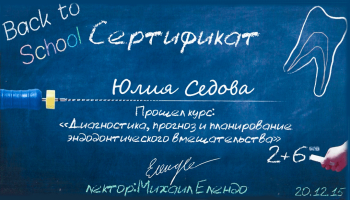 Back to
School
Сертификат
Юлия Седова
Прошел курс:
«Диагностика, прогноз и планирование
эндодонтического вмешательства»
2+6
лектор:Михаил Елендо
20.12.15